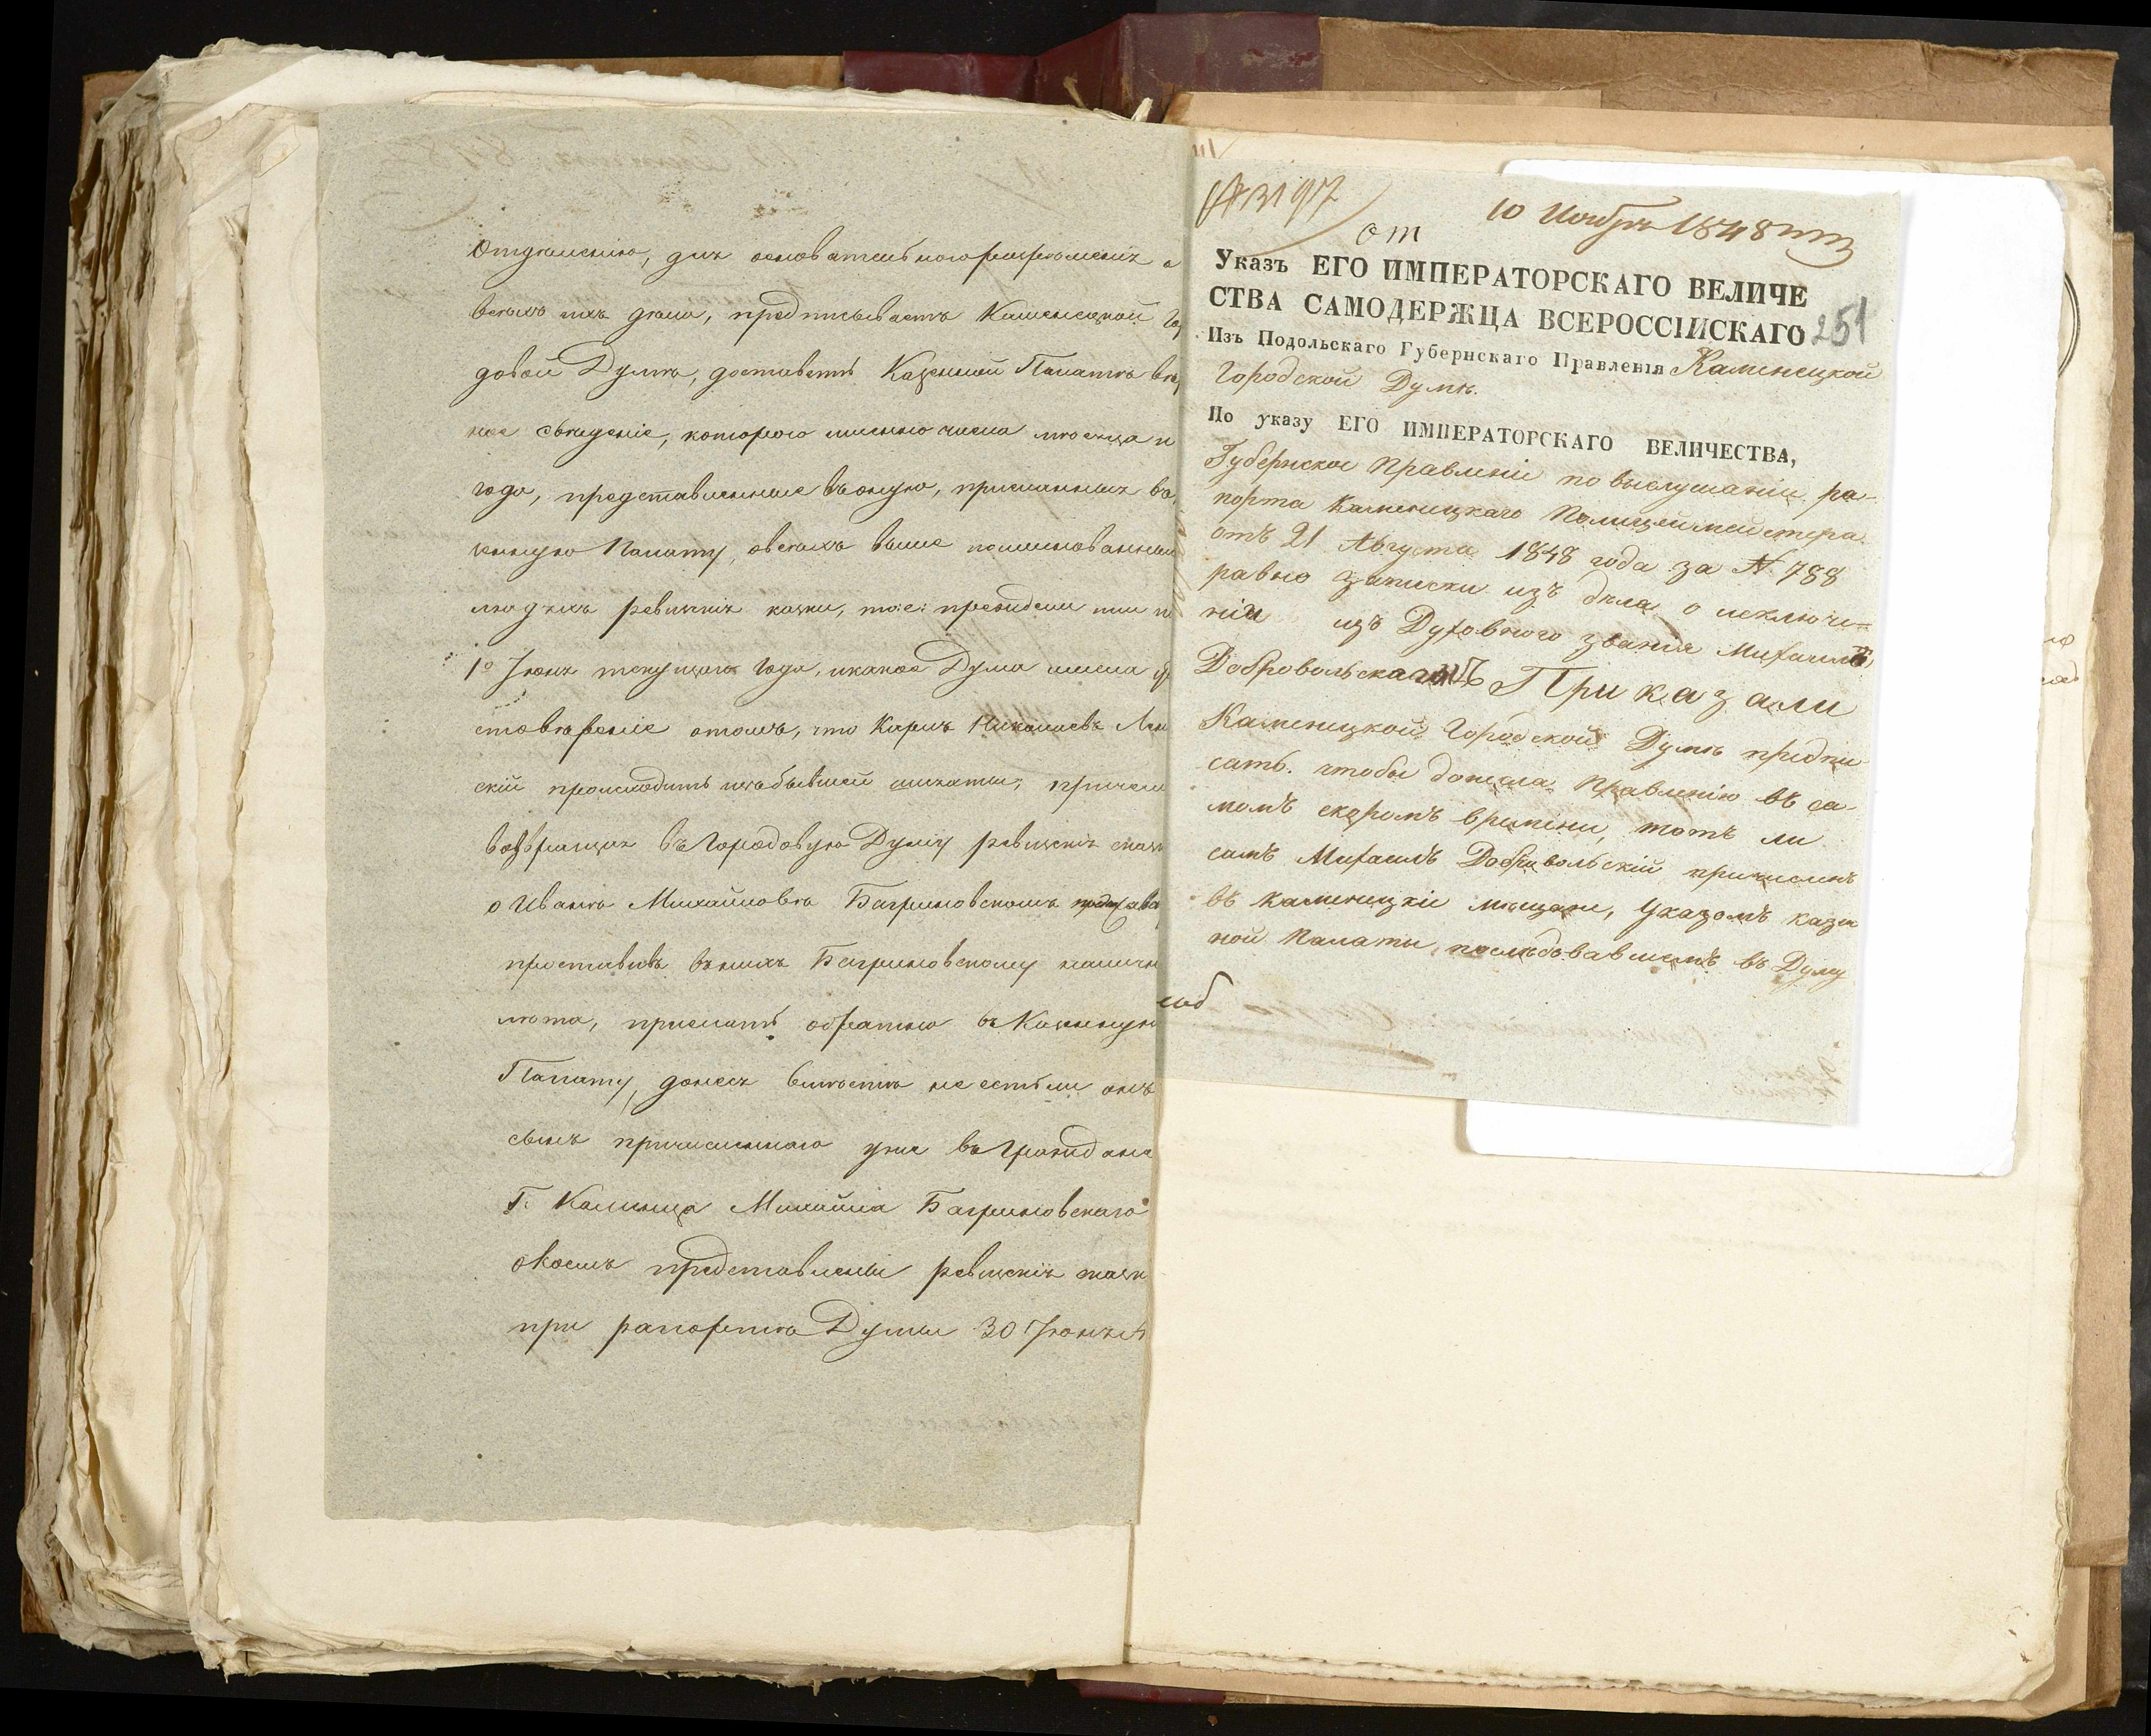 Отделенію, для основательного разрешенія
всехъ ихъ дела, предписываетъ Каменецкой Го
довой Думѣ, доставить Казенной Палатѣ вѣр
ное сведеніе, которого именно числа месяца и
года, представленные въ оную, присланныя въ
енную Палату, о всехъ выше поименованныхъ
людяхъ ревизскія сказки, то:е: прежде ли или
1º Іюня текущаго года, и какое Дума имела
стовереніе о томъ, что Карлъ Николаевъ
скій происходитъ изъ бывшей шляхты; при чемъ
возвращая въ Городовую Думу ревизскія сказк
о Иванѣ Михайловѣ Багриновскомъ
проставивъ въ нихъ Багриновскому
лѣта, прислать обратно въ Казенную
Палату, донеся вмѣстѣ не есть ли онъ
сынъ причисленнаго уже въ граждане
Г. Каменца Михайла Багриновскаго
о коемъ представлены ревизскія сказк
при рапортѣ Думы 30 Іюня
№ 3197
10 Ноября 1848
от
Указъ ЕГО ИМПЕРАТОРСКАГО ВЕЛИЧЕ
СТВА САМОДЕРЖЦА ВСЕРОССІЙСКАГО
251
Изъ Подольскаго Губернскаго Правленія Каменецкой
Городской Думѣ.
По указу ЕГО ИМПЕРАТОРСКАГО ВЕЛИЧЕСТВА,
Губернское Правленіе по выслушаніи ра-
порта Каменецкаго Полицеймейстера
отъ 21 Августа 1848 года за № 788
равно записки изъ дѣла о исключе=
ніи изъ Духовного званія Михаила
Добровольскаго Приказали
Каменецкой Городской Думѣ предпи
сать. чтобы донесла Правленію въ са-
момъ скоромъ времени, тотъ ли
самъ Михаилъ Добровольскій причисленъ
въ Каменецкіе мещане, Указомъ казен
ной Палаты, последовавшемъ въ Думу